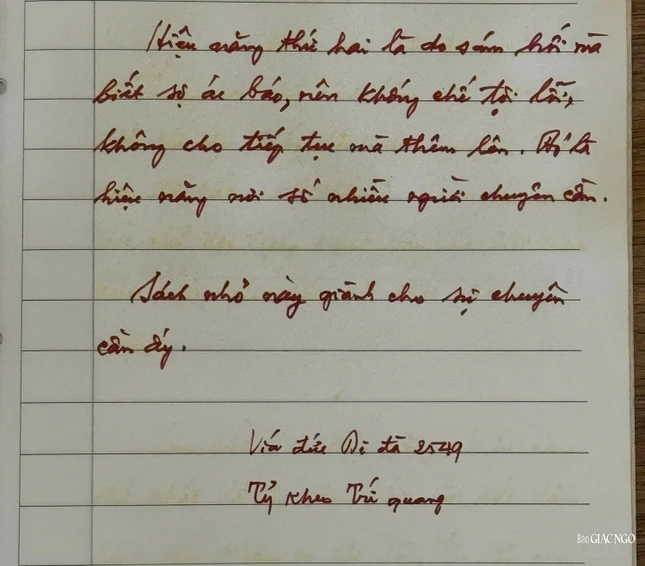 Hiệu năng thứ hai là do sám hối mà
biết sợ ác báo, nên khống chế tội lỗi,
không cho tiếp tục mà thêm lên. Đó là
hiệu năng nơi số nhiều người chuyên cần.
Sách nhỏ này giành cho sự chuyên
cần ấy.
Vía đức Di đà 2549
Tỷ kheo Trí quang
Báo GIÁC NGỘ